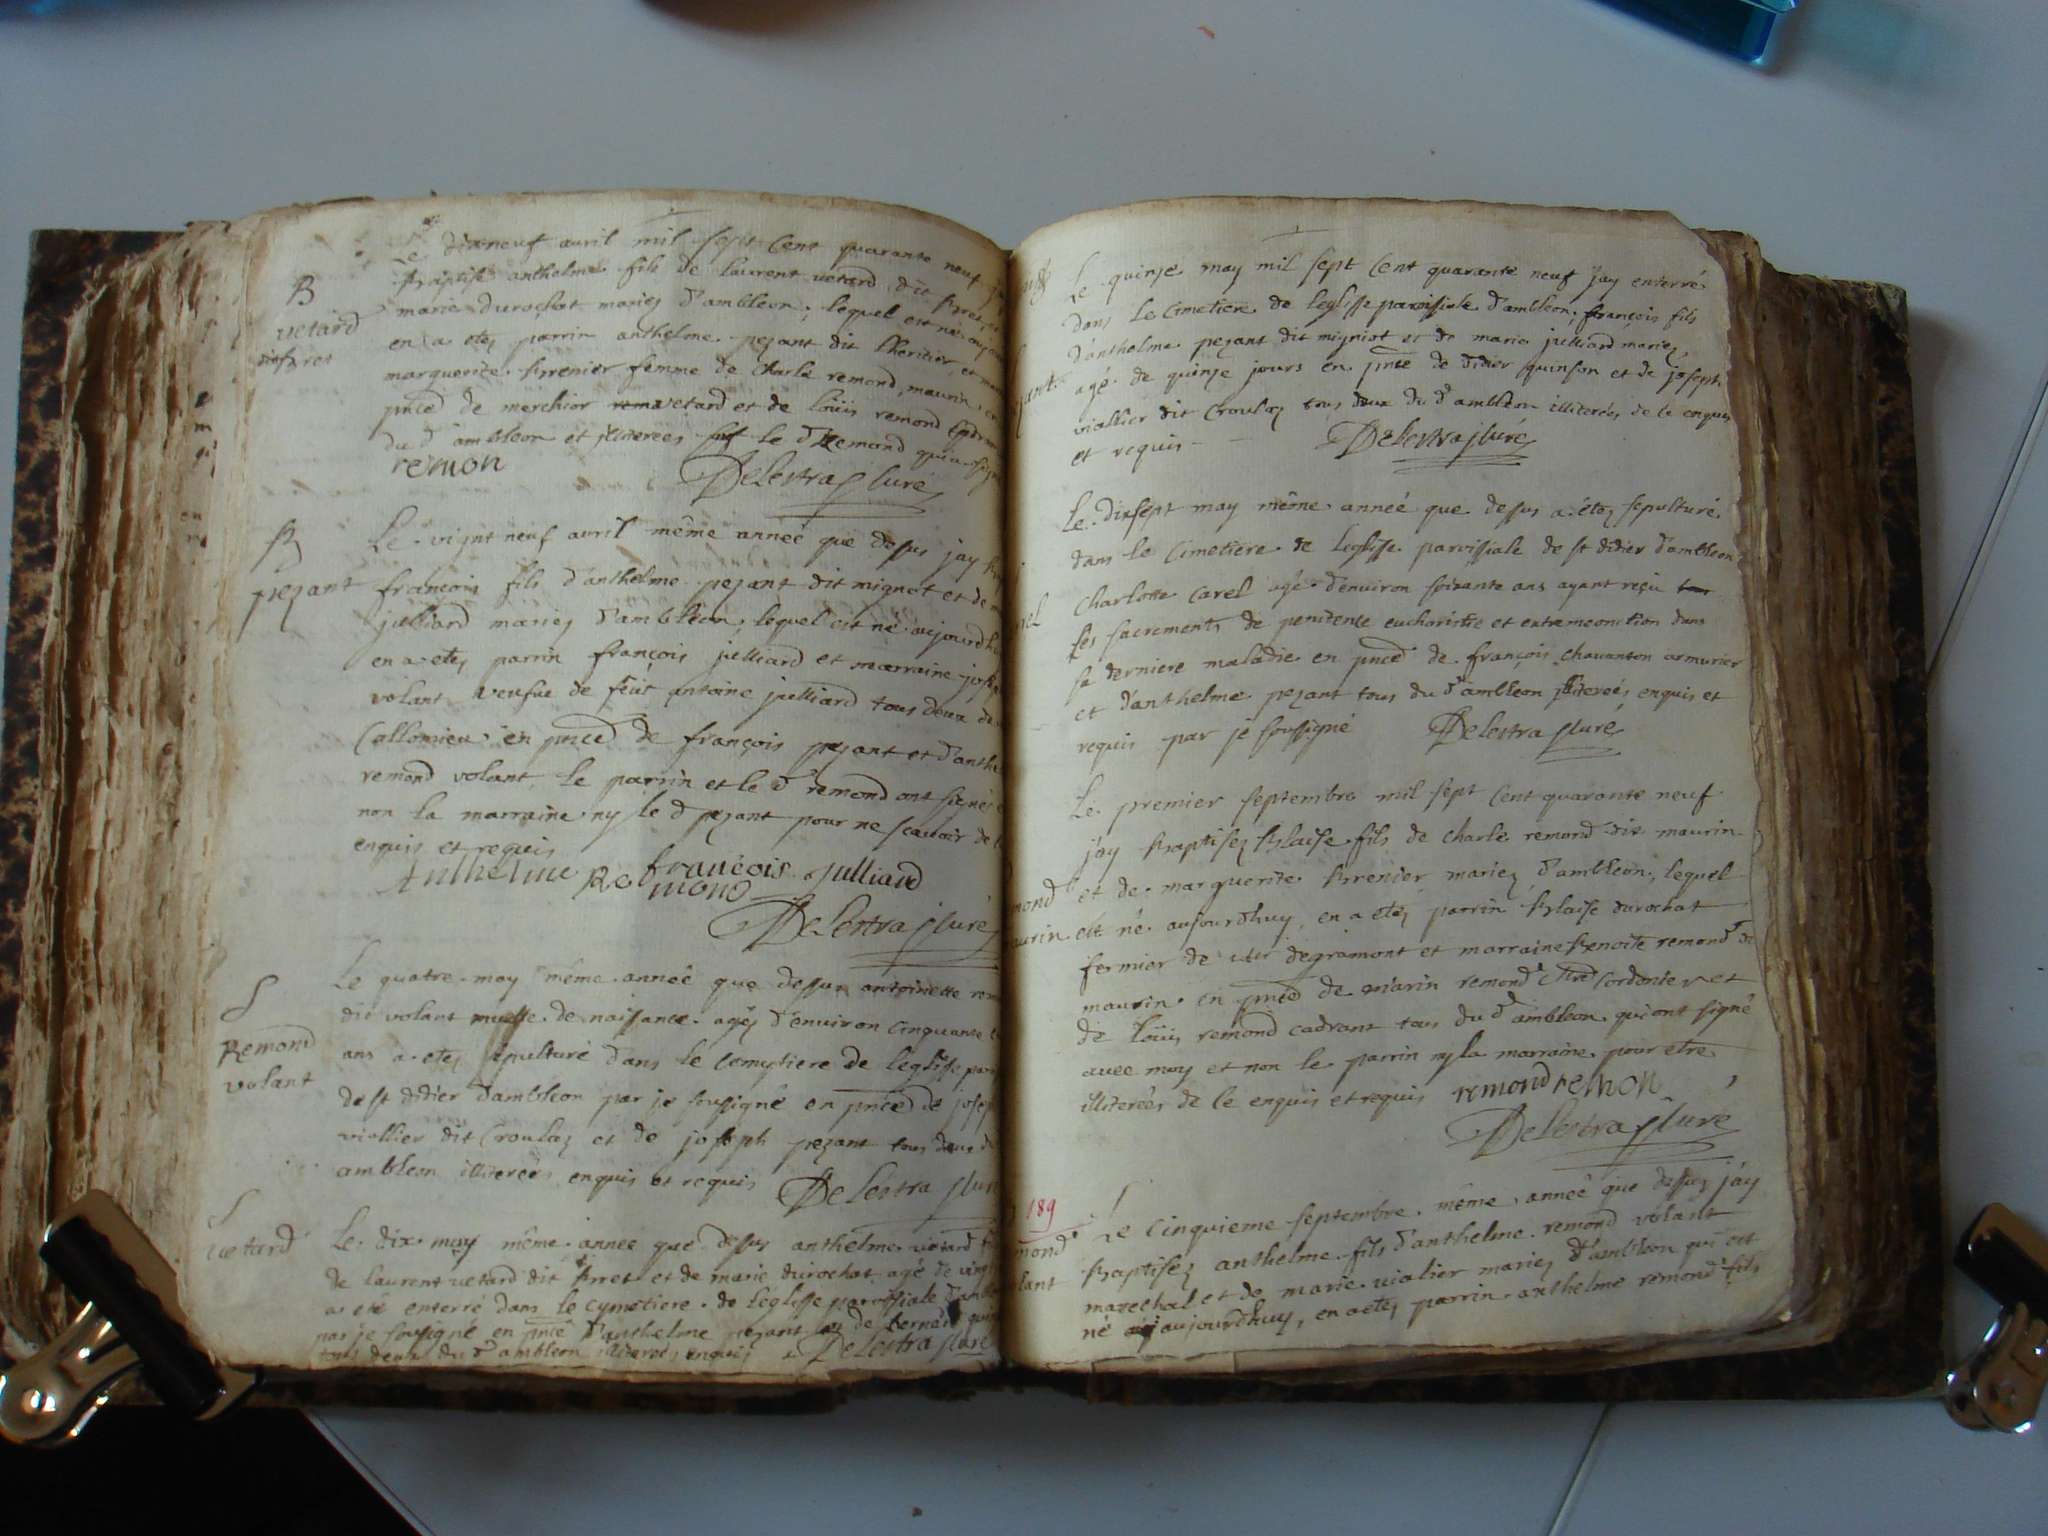 B
vetard
dit bret
Le dixneuf avril mil sept cent quarante neuf jay
baptisé anthelme fils de laurent vetard dit bret, et
marie durochat mariez d'ambleon, lequel est né aujour
en a etez parrin anthelme pezant dit lheritier, et marr
marguerite brenier femme de Charle remond, maurin, en
pnce de merchior vetard et de loüis remond cadran
du d ambleon et illiterees sauf le d Remond qui a signé
remon
Delestra Curé
B
pezant
Le vignt neuf avril même anneé que dessus jay b
françois fils d'anthelme pezant dit mignot et de m
julliard mariez d'ambleon, lequel est né aujourdhu
en a etez parrin françois julliard et marraine josep
volant veufue de feüt antoine julliard tous deux de
Collomieu en pnce de françois pezant et d'anthe
remond volant, le parrin et le d remond ont signé e
non la marraine ny le d pezant pour ne scauoir de
enquis et requis
Anthelme Remond françois julliard
Delestra Curé
S
Remond
volant
Le quatre may même anneé que dessus antoinette rem
dit volant muette de naissance agez d'environ cinquante
ans a etez sepulturé dans le cemytiere de leglise paro
de st didier d'ambleon par je sousigné en pnce de josep
viallier dit Croulaz et de joseph pezant tous deux du
ambleon illitereés enquis et requis Delestra Curé
S
vetard
Le dix may même anneé que dessus anthelme vetard f
de laurent vetard dit bret et de marie durochat agé de vingt
a été enterré dans le cymetiere de leglisse paroissiale d'amb
par je sousigné en pnce d'anthelme pezant et de bernard quin
tous deux du d ambleon illitereés enquis Delestra Curé
Le quinze may mil sept cent quarante neuf jay enterré
dans le cimetiere de leglisse paroissiale d'ambleon, françois fils
d'anthelme pezant dit migniot et de marie julliard mariez,
agé de quinze jours en pnce de didier quinson et de joseph
viallier dit Croulaz tous deux du d ambleon illitereés de ce enquis
et requis
Delestra Curé
Le dixsept may même anneé que dessus a étez sepulturé
dans le cimetiere de leglisse paroissiale de st didier d'ambleon
Charlotte Carel agé d'environ soixante ans ayant reçu
les sacrements de penitense eucharistie et extremeonction dans
sa derniere maladie en pnce de françois chauanton armurier
et d'anthelme pezant tous du d ambleon illitereés enquis et
requis par je soussigné Delestra Curé
mond
aurin
Le premier septembre mil sept cent quarante neuf
j'ay baptisez blaise fils de charle remond dit maurin
et de marguerite brenier mariez d'ambleon, lequel
est né aujourdhuy, en a etez parrin blaise durochat
fermier de mr degramont et marraine benoite remond d
maurin en pnce de marin remond Cordonier et
de loüis remond cadrant tous du d ambleon qui ont signé
avec moy et non le parrin ny la marraine pour etre
illitereés de ce enquis et requis remond remon
Delestra Curé
189
mond
lant
Le cinquieme septembre même anneé que dessus j'ay
baptisez anthelme fils d'anthelme remond volant
marechal et de marie vialier mariez d'ambleon qui est
né aujourdhuy, en a etez parrin anthelme remond fils